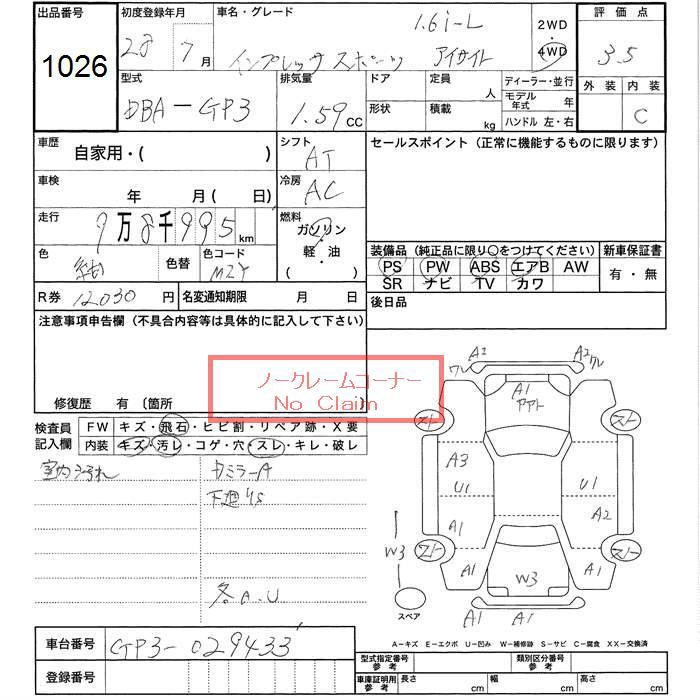 出品番号
1026
初度登録年月
28 7月
車名・グレード
1.6i-L
インプレッサ スポーツ アイサイト
2WD
4WD
評価点
3.5
外装 内装
C
型式
DBA-GP3
排気量
1.59 CC
ドア
形状
定員
人
積載
kg
ディーラー・並行
モデル年式 年
ハンドル 左・右
車歴
自家用・( )
シフト
AT
セールスポイント (正常に機能するものに限ります)
車検
年 月 (日)
冷房
AC
走行
9万8千995km
燃料
ガソリン
・
軽・油
( )
色
紺
色替
色コード
R券 12030円
名変通知期限 月 日
装備品 (純正品に限り○をつけてください)
PS PW ABS エアB AW
SR ナビ TV カワ
新車保証書
有・無
後日品
注意事項申告欄 (不具合内容等は具体的に記入して下さい)
修復歴 有 〔箇所
ノークレームコーナー
No Claim
検査員記入欄
FW キズ・飛石・ヒビ割・リペア跡・X要
内装 キズ・汚レ・コゲ・穴・スレ・キレ・破レ
室内汚れ
カミラーA
下廻りS
各A.U
A2
ワレ
A2 ワレ
A1
スト
スト
A3
U1
U1
A1
A2
スト
スト
W3
A1
W3
A1
スペア
A1
A1
A-キズ E-エクボ U-凹み W-補修跡 S-サビ C-腐食 XX-交換済
車台番号
GP3-029433
登録番号
型式指定番号 参考
類別区分番号 参考
車庫証明用 参考
長さ cm
幅 cm
高さ cm